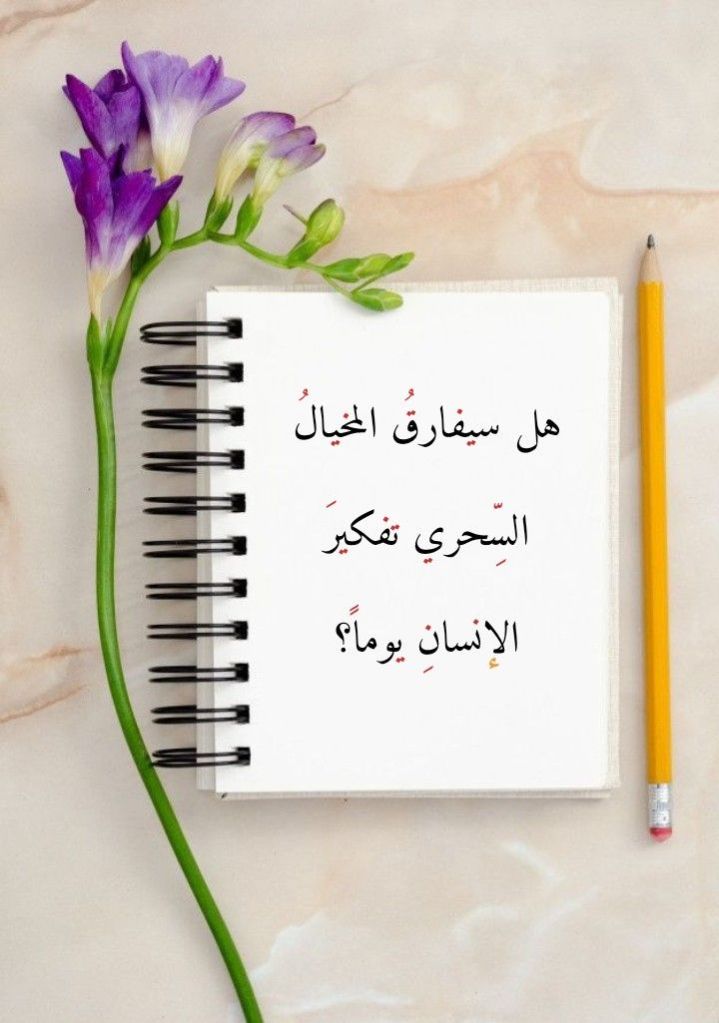 هل سيفارقُ المخيالُ
السِّحري تفكيرَ
الإنسانِ يوماً؟